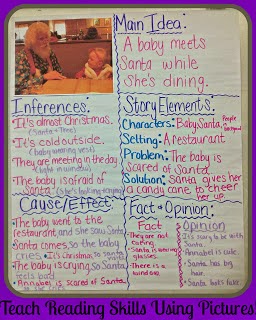 Main Idea:
A baby meets
Santa while
She's dining.
Inferences:
•It's almost Christmas.
(Santa + Tree)
•It's cold outside.
(baby wearing vest)
They are meeting in the day
(light in window)
•The baby is afraid of
Santa (She's looking crying)
Story Elements:
Characters: Baby, Santa, People
background
Setting: A restaurant
Problem: The baby is
scared of Santa.
Solution: Santa gives her
a candy cane to cheer
her up
Cause/Effect:
•The baby went to the
restaurant, and she saw Santa
Santa comes, so the baby
cries •It's Christmas, so Santa
The baby is crying, so Santa
feels bad
•Annabel is scared of Santa
Fact + Opinion:
Fact
•They are not
eating.
•Santa is wearing
glasses.
•There is a
window.
Opinion
•It's scary to be with
Santa.
•Annabel is cute
•Santa has big
hair.
•Santa looks
Teach Reading Skills Using Pictures!